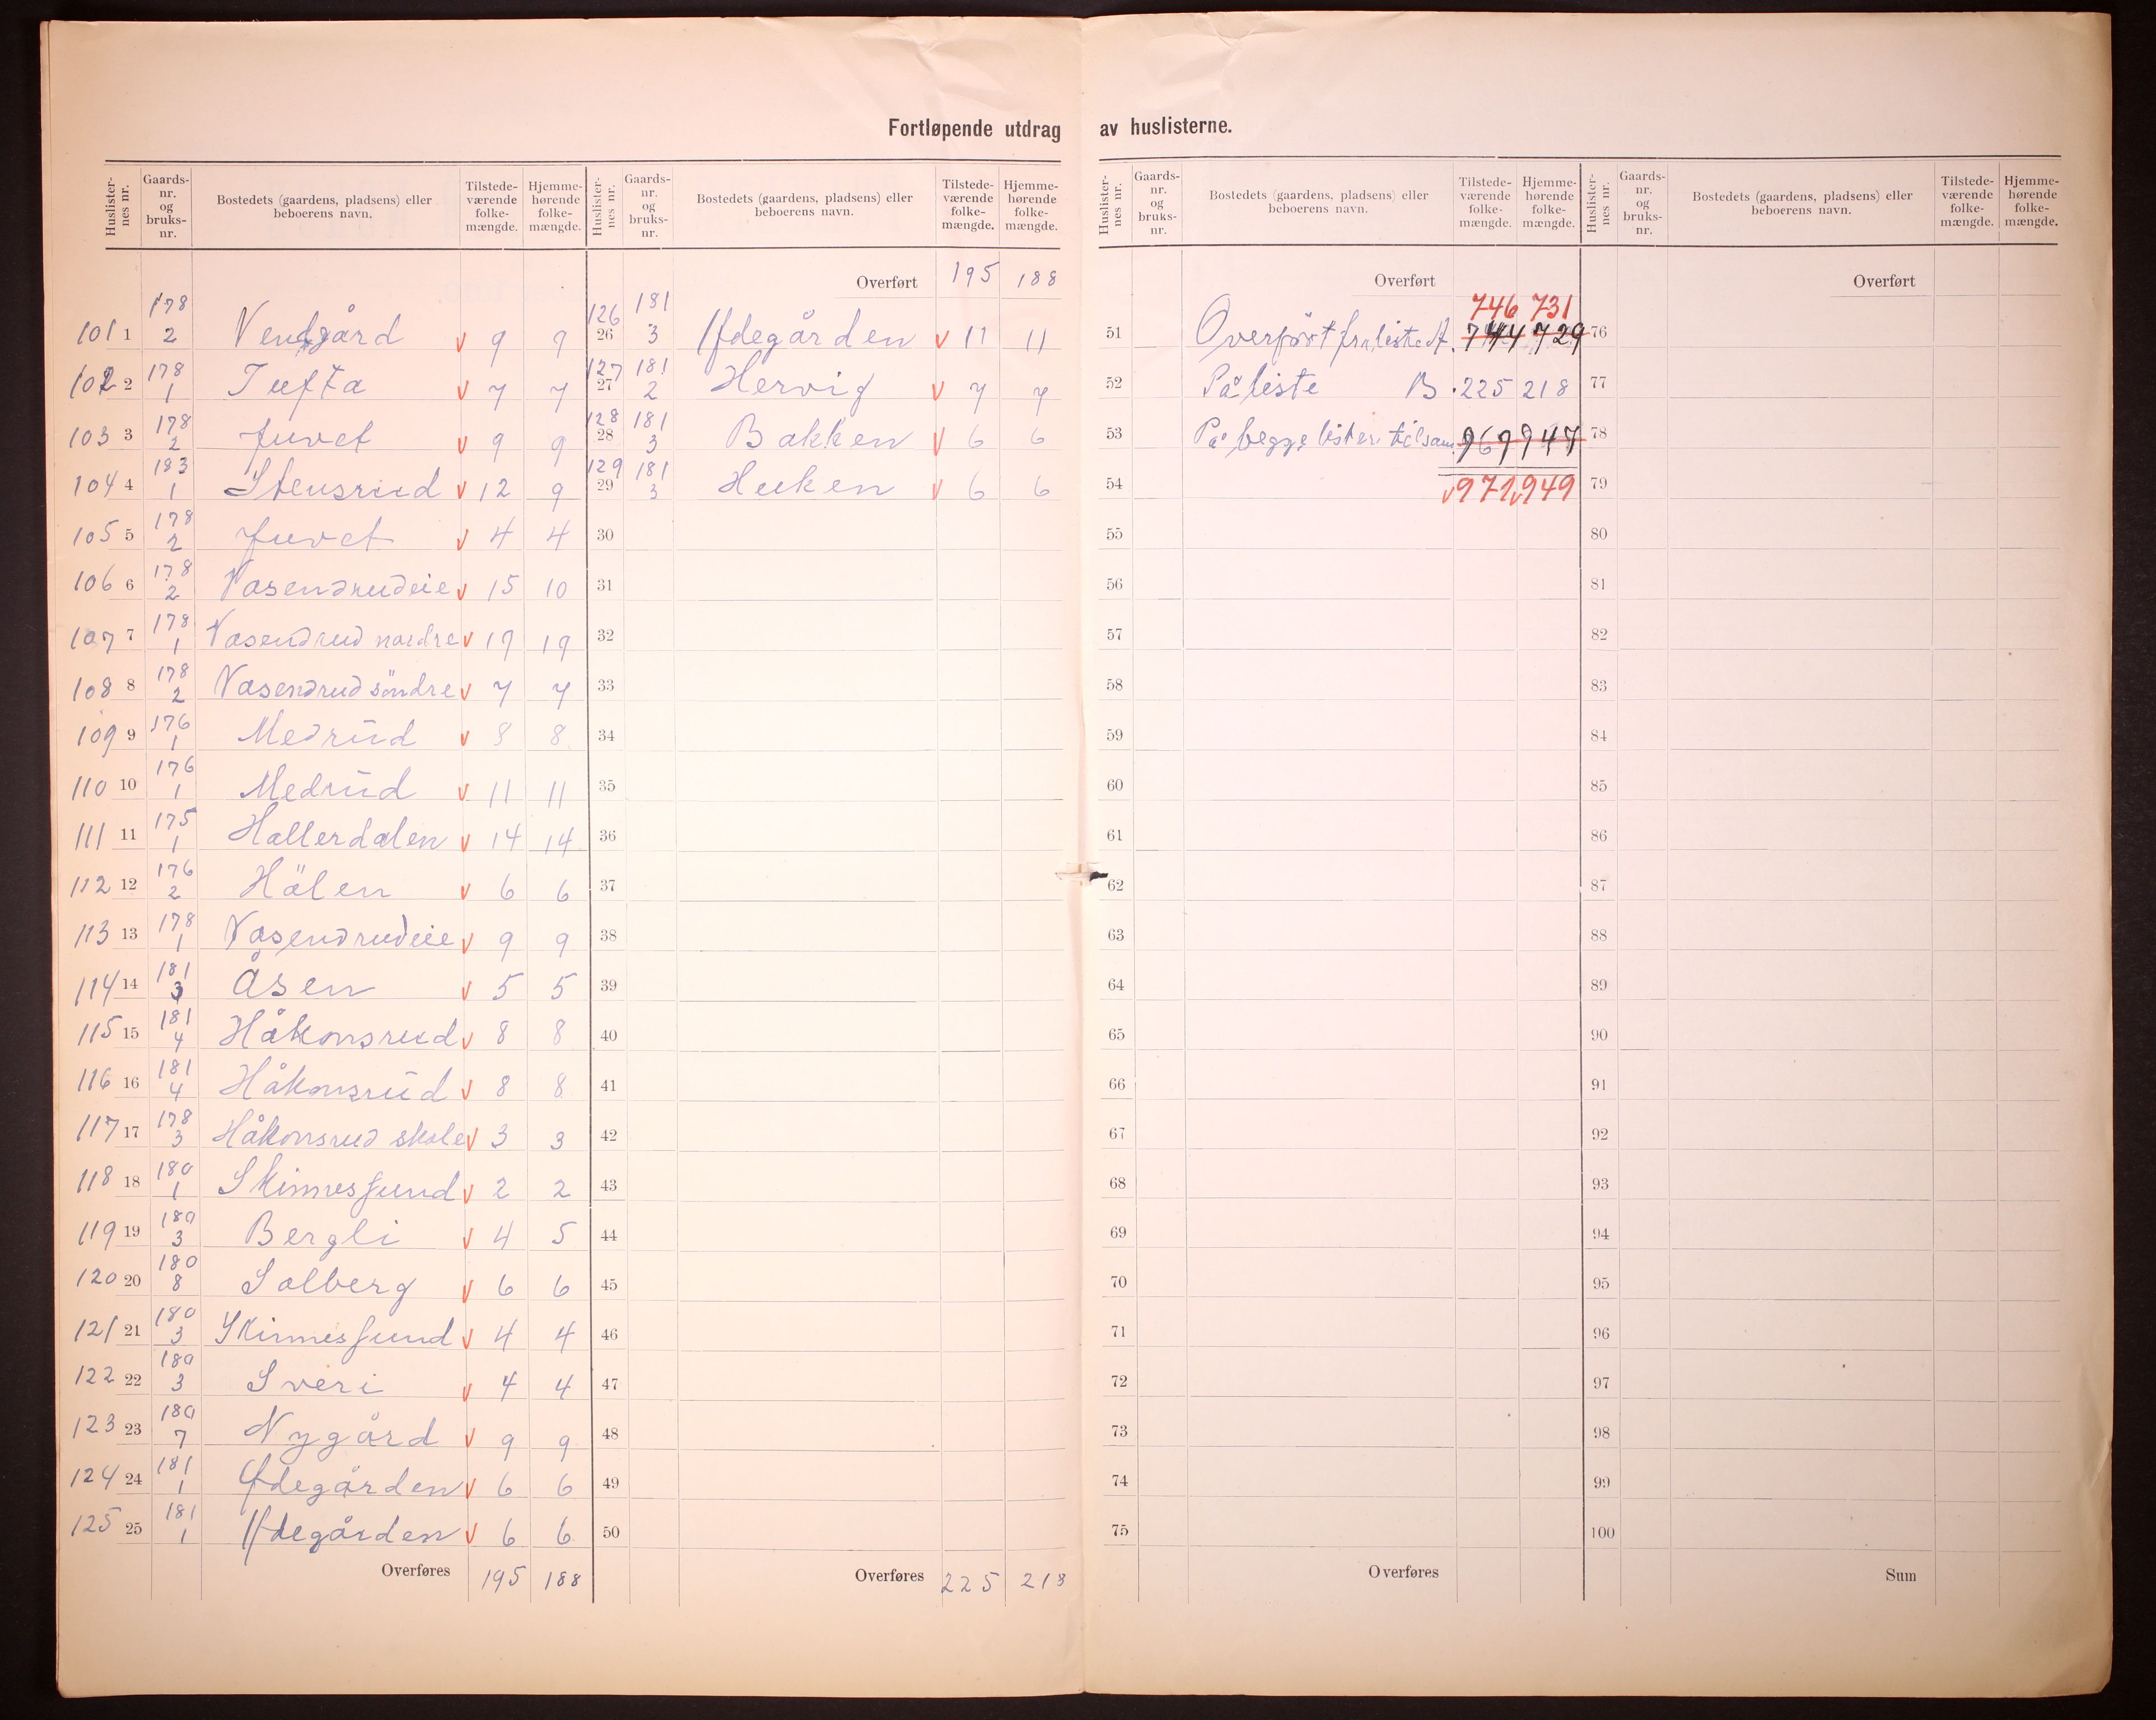 Fortløpende utdrag av huslisterne.
Huslister-nes nr. Gaards-nr. og bruks-nr. Bostedets (gaardens, pladsens) eller beboerens navn. Tilstede-værende folke-mængde. Hjemme-hørende folke-mængde.
101 1 178 2 Vendgård v 9 9
102 2 178 1 Tufta v 7 7
103 3 178 2 Juvet v 9 9
104 4 183 1 Stensrud v 12 9
105 5 178 2 Juvet v 4 4
106 6 178 2 Vasendrudeie v 15 10
107 7 178 1 Vasendrud nordre v 19 19
108 8 178 2 Vasendrud söndre v 7 7
109 9 176 1 Medrud v 8 8
110 10 176 1 Medrud v 11 11
111 11 175 1 Hallerdalen v 14 14
112 12 176 2 Hålen v 6 6
113 13 178 1 Vasendrudeie v 9 9
114 14 181 3 Åsen v 5 5
115 15 181 4 Håkonsrud v 8 8
116 16 181 4 Håkonsrud v 8 8
117 17 178 3 Håkonsrud skole v 3 3
118 18 180 1 Skinnesfund v 2 2
119 19 180 3 Bergli v 4 5
120 20 180 8 Solberg v 6 6
121 21 180 3 Skinnesfund v 4 4
122 22 180 3 Sveri v 4 4
123 23 180 7 Nygård v 9 9
124 24 181 1 Ødegården v 6 6
125 25 181 1 Ødegården v 6 6
Overføres 195 188
Huslister-nes nr. Gaards-nr. og bruks-nr. Bostedets (gaardens, pladsens) eller beboerens navn. Tilstede-værende folke-mængde. Hjemme-hørende folke-mængde.
Overført 195 188
126 26 181 3 Ødegården v 11 11
127 27 181 2 Hervig v 7 7
128 28 181 3 Bakken v 6 6
129 29 181 3 Huken v 6 6
30
31
32
33
34
35
36
37
38
39
40
41
42
43
44
45
46
47
48
49
50
Overføres 225 218
Huslister-nes nr. Gaards-nr. og bruks-nr. Bostedets (gaardens, pladsens) eller beboerens navn. Tilstede-værende folke-mængde. Hjemme-hørende folke-mængde.
Overført
746 731
51 Overført fra liste A. 744 729
52 På liste B. 225 218
53 På begge lister tilsam. 969 947
54 v971 v949
55
56
57
58
59
60
61
62
63
64
65
66
67
68
69
70
71
72
73
74
75
Overføres
Huslister-nes nr. Gaards-nr. og bruks-nr. Bostedets (gaardens, pladsens) eller beboerens navn. Tilstede-værende folke-mængde. Hjemme-hørende folke-mængde.
Overført
76
77
78
79
80
81
82
83
84
85
86
87
88
89
90
91
92
93
94
95
96
97
98
99
100
Sum